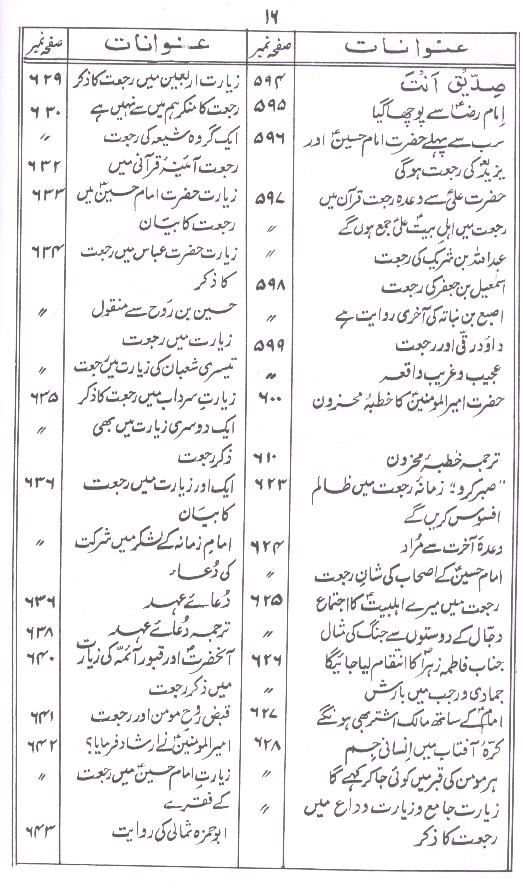 ۱۶
عنوانات صفحہ نمبر
صِدِّیْق اَنْتَ ۵۹۴
امام رضاؑ سے پوچھا گیا ۵۹۵
سب سے پہلے حضرت امام حسینؑ اور ۵۹۶
یزید کی رجعت ہوگی
حضرت علیؑ سے وعدہ رجعت قرآن میں ۵۹۷
رجعت میں اہل بیتؑ علیؑ جمع ہوں گے 〃
عبداللہ بن شریک کی رجعت 〃
اسمٰعیل بن جعفر کی رجعت ۵۹۸
اصبغ بن نباتہ کی آخری روایت ہے 〃
داؤد رقی اور رجعت ۵۹۹
عجیب و غریب واقعہ 〃
حضرت امیرالمومنینؑ کا خطبۂ مخزون ۶۰۰
ترجمہ خطبۂ مخزون ۶۱۰
"صبر کرو"؛ زمانۂ رجعت میں ظالم ۶۲۳
افسوس کریں گے
وعدۂ آخرت سے مُراد ۶۲۴
امام حسینؑ کے اصحاب کی شانِ رجعت 〃
رجعت میں میرے اہلبیتؑ کا اجتماع ۶۲۵
دجّال کے دوستوں سے جنگ کی مثال 〃
جناب فاطمہ زہراؑ کا انتقام لیا جائیگا ۶۲۶
جمادی و رجب میں بارش 〃
امامؑ کے ساتھ مالک اشتر بھی ہونگے ۶۲۷
کرّۂ آفتاب میں انسانی جسم ۶۲۸
ہر مومن کی قبر میں کوئی جا کر کہے گا 〃
زیارت جامع و زیارت وداع میں 〃
رجعت کا ذکر
عنوانات صفحہ نمبر
زیارت اربعین میں رجعت کا ذکر ۶۲۹
رجعت کا منکر ہم میں سے نہیں ہے ۶۳۰
ایک گروہ شیعہ کی رجعت 〃
رجعت آئینۂ قرآنی میں ۶۳۲
زیارت حضرت امام حسینؑ میں ۶۳۳
رجعت کا بیان
زیارت حضرت عباس میں رجعت ۶۳۴
کا ذکر
حسین بن رَوح سے منقول 〃
زیارت میں رجعت
تیسری شعبان کی زیارت میں رجعت 〃
زیارتِ سرداب میں رجعت کا ذکر ۶۳۵
ایک دوسری زیارت میں بھی 〃
ذکر رجعت
ایک اور زیارت میں رجعت ۶۳۶
کا بیان
امام زمانہ کے لشکر میں شرکت 〃
کی دُعاء
دُعائے عہد ۶۳۶
ترجمہ دُعائے عہد ۶۳۸
آنحضرتؐ اور قبور آئمّہ کی زیارت ۶۴۰
میں ذکر رجعت
قبض رُوحِ مومن اور رجعت ۶۴۱
امیرالمومنینؑ نے ارشاد فرمایا؟ ۶۴۲
زیارتِ امام حسینؑ میں رجعت 〃
کے فقرے
ابوحمزہ ثمالی کی روایت ۶۴۳